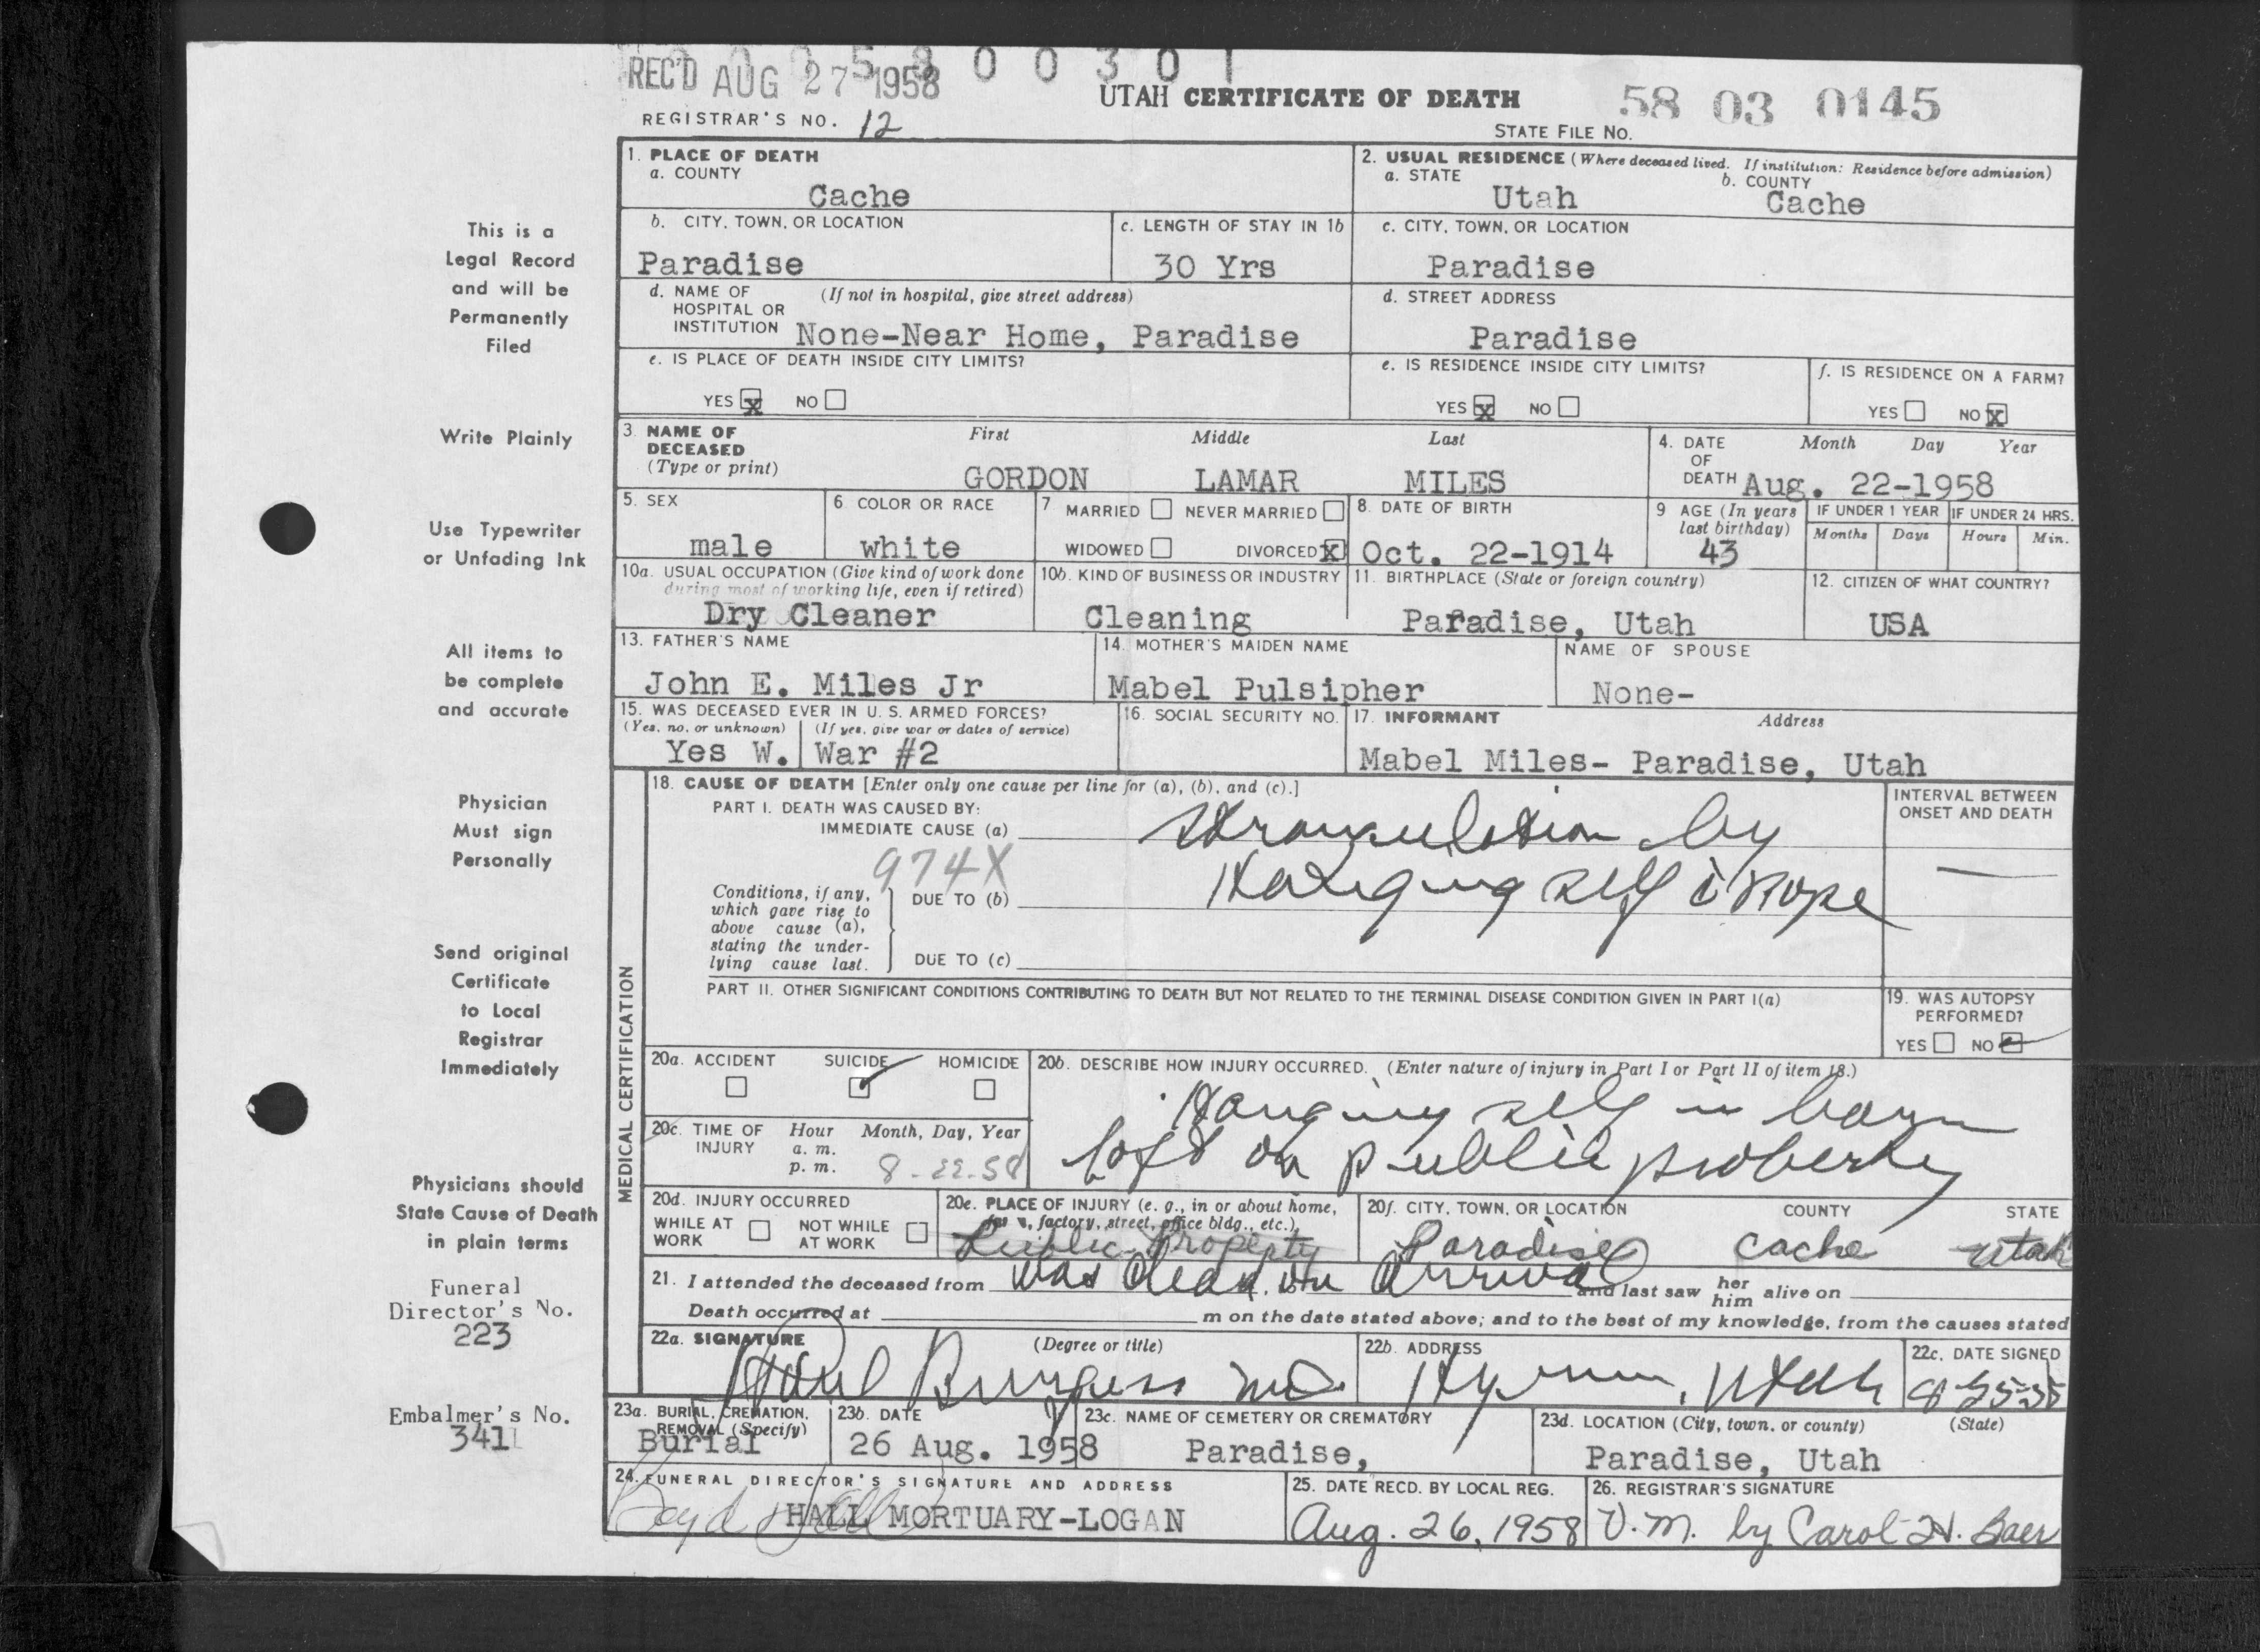 REC'D AUG 27 1958
UTAH CERTIFICATE OF DEATH
58 03 0145
REGISTRAR'S NO. 12
STATE FILE NO.
This is a
Legal Record
and will be
Permanently
Filed
Write Plainly
Use Typewriter
or Unfading Ink
All items to
be complete
and accurate
Physician
Must sign
Personally
Send original
Certificate
to Local
Registrar
Immediately
Physicians should
State Cause of Death
in plain terms
Funeral
Director's No.
223
Embalmer's No.
341
1. PLACE OF DEATH
a. COUNTY
Cache
2. USUAL RESIDENCE (Where deceased lived. If institution: Residence before admission)
a. STATE
Utah
b. COUNTY
Cache
b. CITY, TOWN, OR LOCATION
Paradise
c. LENGTH OF STAY IN 1b
30 Yrs
c. CITY, TOWN, OR LOCATION
Paradise
d. NAME OF (If not in hospital, give street address)
HOSPITAL OR
INSTITUTION None-Near Home, Paradise
d. STREET ADDRESS
Paradise
e. IS PLACE OF DEATH INSIDE CITY LIMITS?
YES x NO
e. IS RESIDENCE INSIDE CITY LIMITS?
YES x NO
f. IS RESIDENCE ON A FARM?
YES NO x
3. NAME OF
DECEASED
(Type or print)
First Middle Last
GORDON LAMAR MILES
4. DATE
OF
DEATH
Month Day Year
Aug. 22-1958
5. SEX
male
6 COLOR OR RACE
white
7 MARRIED NEVER MARRIED
WIDOWED DIVORCED X
8. DATE OF BIRTH
Oct. 22-1914
9 AGE (In years
last birthday)
43
IF UNDER 1 YEAR
Months Days
IF UNDER 24 HRS.
Hours Min.
10a. USUAL OCCUPATION (Give kind of work done
during most of working life, even if retired)
Dry Cleaner
10b. KIND OF BUSINESS OR INDUSTRY
Cleaning
11. BIRTHPLACE (State or foreign country)
Paradise, Utah
12. CITIZEN OF WHAT COUNTRY?
USA
13. FATHER'S NAME
John E. Miles Jr
14. MOTHER'S MAIDEN NAME
Mabel Pulsipher
NAME OF SPOUSE
None-
15. WAS DECEASED EVER IN U. S. ARMED FORCES?
(Yes, no, or unknown) (If yes, give war or dates of service)
Yes W. War #2
16. SOCIAL SECURITY NO.
17. INFORMANT Address
Mabel Miles- Paradise, Utah
MEDICAL CERTIFICATION
18. CAUSE OF DEATH [Enter only one cause per line for (a), (b), and (c).]
PART I. DEATH WAS CAUSED BY:
IMMEDIATE CAUSE (a) Strangulation by
974X
Conditions, if any,
which gave rise to
above cause (a),
stating the under-
lying cause last.
DUE TO (b) Hanging self c̄ rope
DUE TO (c)
INTERVAL BETWEEN
ONSET AND DEATH
—
PART II. OTHER SIGNIFICANT CONDITIONS CONTRIBUTING TO DEATH BUT NOT RELATED TO THE TERMINAL DISEASE CONDITION GIVEN IN PART I(a)
19. WAS AUTOPSY
PERFORMED?
YES NO
20a. ACCIDENT SUICIDE HOMICIDE
20b. DESCRIBE HOW INJURY OCCURRED. (Enter nature of injury in Part I or Part II of item 18.)
Hanging self in barn
loft on public property
20c. TIME OF
INJURY
Hour Month, Day, Year
a. m.
p. m. 8-22-58
20d. INJURY OCCURRED
WHILE AT
WORK
NOT WHILE
AT WORK
20e. PLACE OF INJURY (e. g., in or about home,
factory, street, office bldg., etc.)
Public Property
20f. CITY, TOWN, OR LOCATION COUNTY STATE
Paradise Cache Utah
21. I attended the deceased from was dead on arrival and last saw her him alive on
Death occurred at m on the date stated above; and to the best of my knowledge, from the causes stated
22a. SIGNATURE (Degree or title)
Burgess MD
22b. ADDRESS
Hyrum, Utah
22c. DATE SIGNED
23a. BURIAL, CREMATION,
REMOVAL (Specify)
Burial
23b. DATE
26 Aug. 1958
23c. NAME OF CEMETERY OR CREMATORY
Paradise,
23d. LOCATION (City, town, or county) (State)
Paradise, Utah
24. FUNERAL DIRECTOR'S SIGNATURE AND ADDRESS
Boyd Hall HALL MORTUARY-LOGAN
25. DATE RECD. BY LOCAL REG.
Aug. 26, 1958
26. REGISTRAR'S SIGNATURE
V. M. by Carol H. Baer